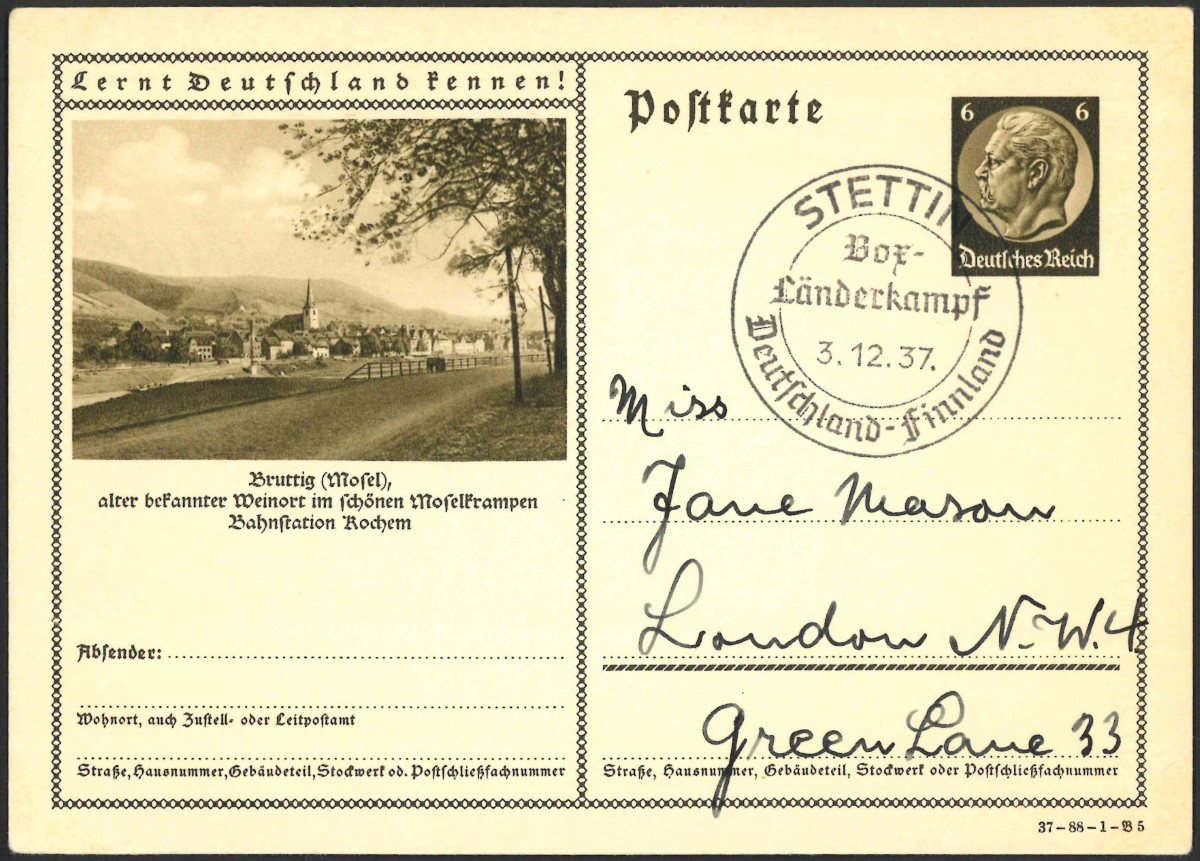 Lernt Deutschland kennen!
Bruttig (Mosel),
alter bekannter Weinort im schönen Moselkrampen
Bahnstation Kochem
Absender:
Wohnort, auch Zustell- oder Leitpostamt
Straße, Hausnummer, Gebäudeteil, Stockwerk od. Postschließfachnummer
Postkarte
6 6
Deutsches Reich
STETTIN
Box-
Länderkampf
3.12.37.
Deutschland-Finnland
Miss
Jane Mason
London N.W.4.
Green Lane 33
Straße, Hausnummer, Gebäudeteil, Stockwerk oder Postschließfachnummer
37-88-1-B 5